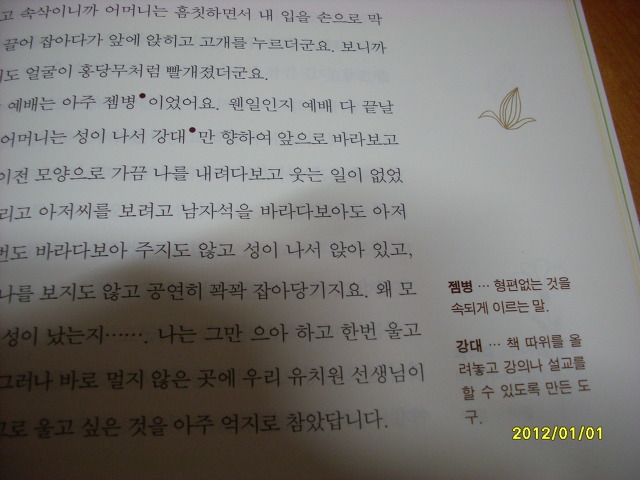 고 속삭이니까 어머니는 흠칫하면서 내 입을 손으로 막
끌어 잡아다가 앞에 앉히고 고개를 누르더군요. 보니까
도 얼굴이 홍당무처럼 빨개졌더군요.
예배는 아주 젬병•이었어요. 웬일인지 예배 다 끝날
어머니는 성이 나서 강대•만 향하여 앞으로 바라보고
이전 모양으로 가끔 나를 내려다보고 웃는 일이 없었
리고 아저씨를 보려고 남자석을 바라다보아도 아저
번도 바라다보아 주지도 않고 성이 나서 앉아 있고,
나를 보지도 않고 공연히 꽉꽉 잡아당기지요. 왜 모
성이 났는지……. 나는 그만 으아 하고 한번 울고
그러나 바로 멀지 않은 곳에 우리 유치원 선생님이
로 울고 싶은 것을 아주 억지로 참았답니다.
젬병 … 형편없는 것을
속되게 이르는 말.
강대 … 책 따위를 올
려놓고 강의나 설교를
할 수 있도록 만든 도
구.
2012/01/01